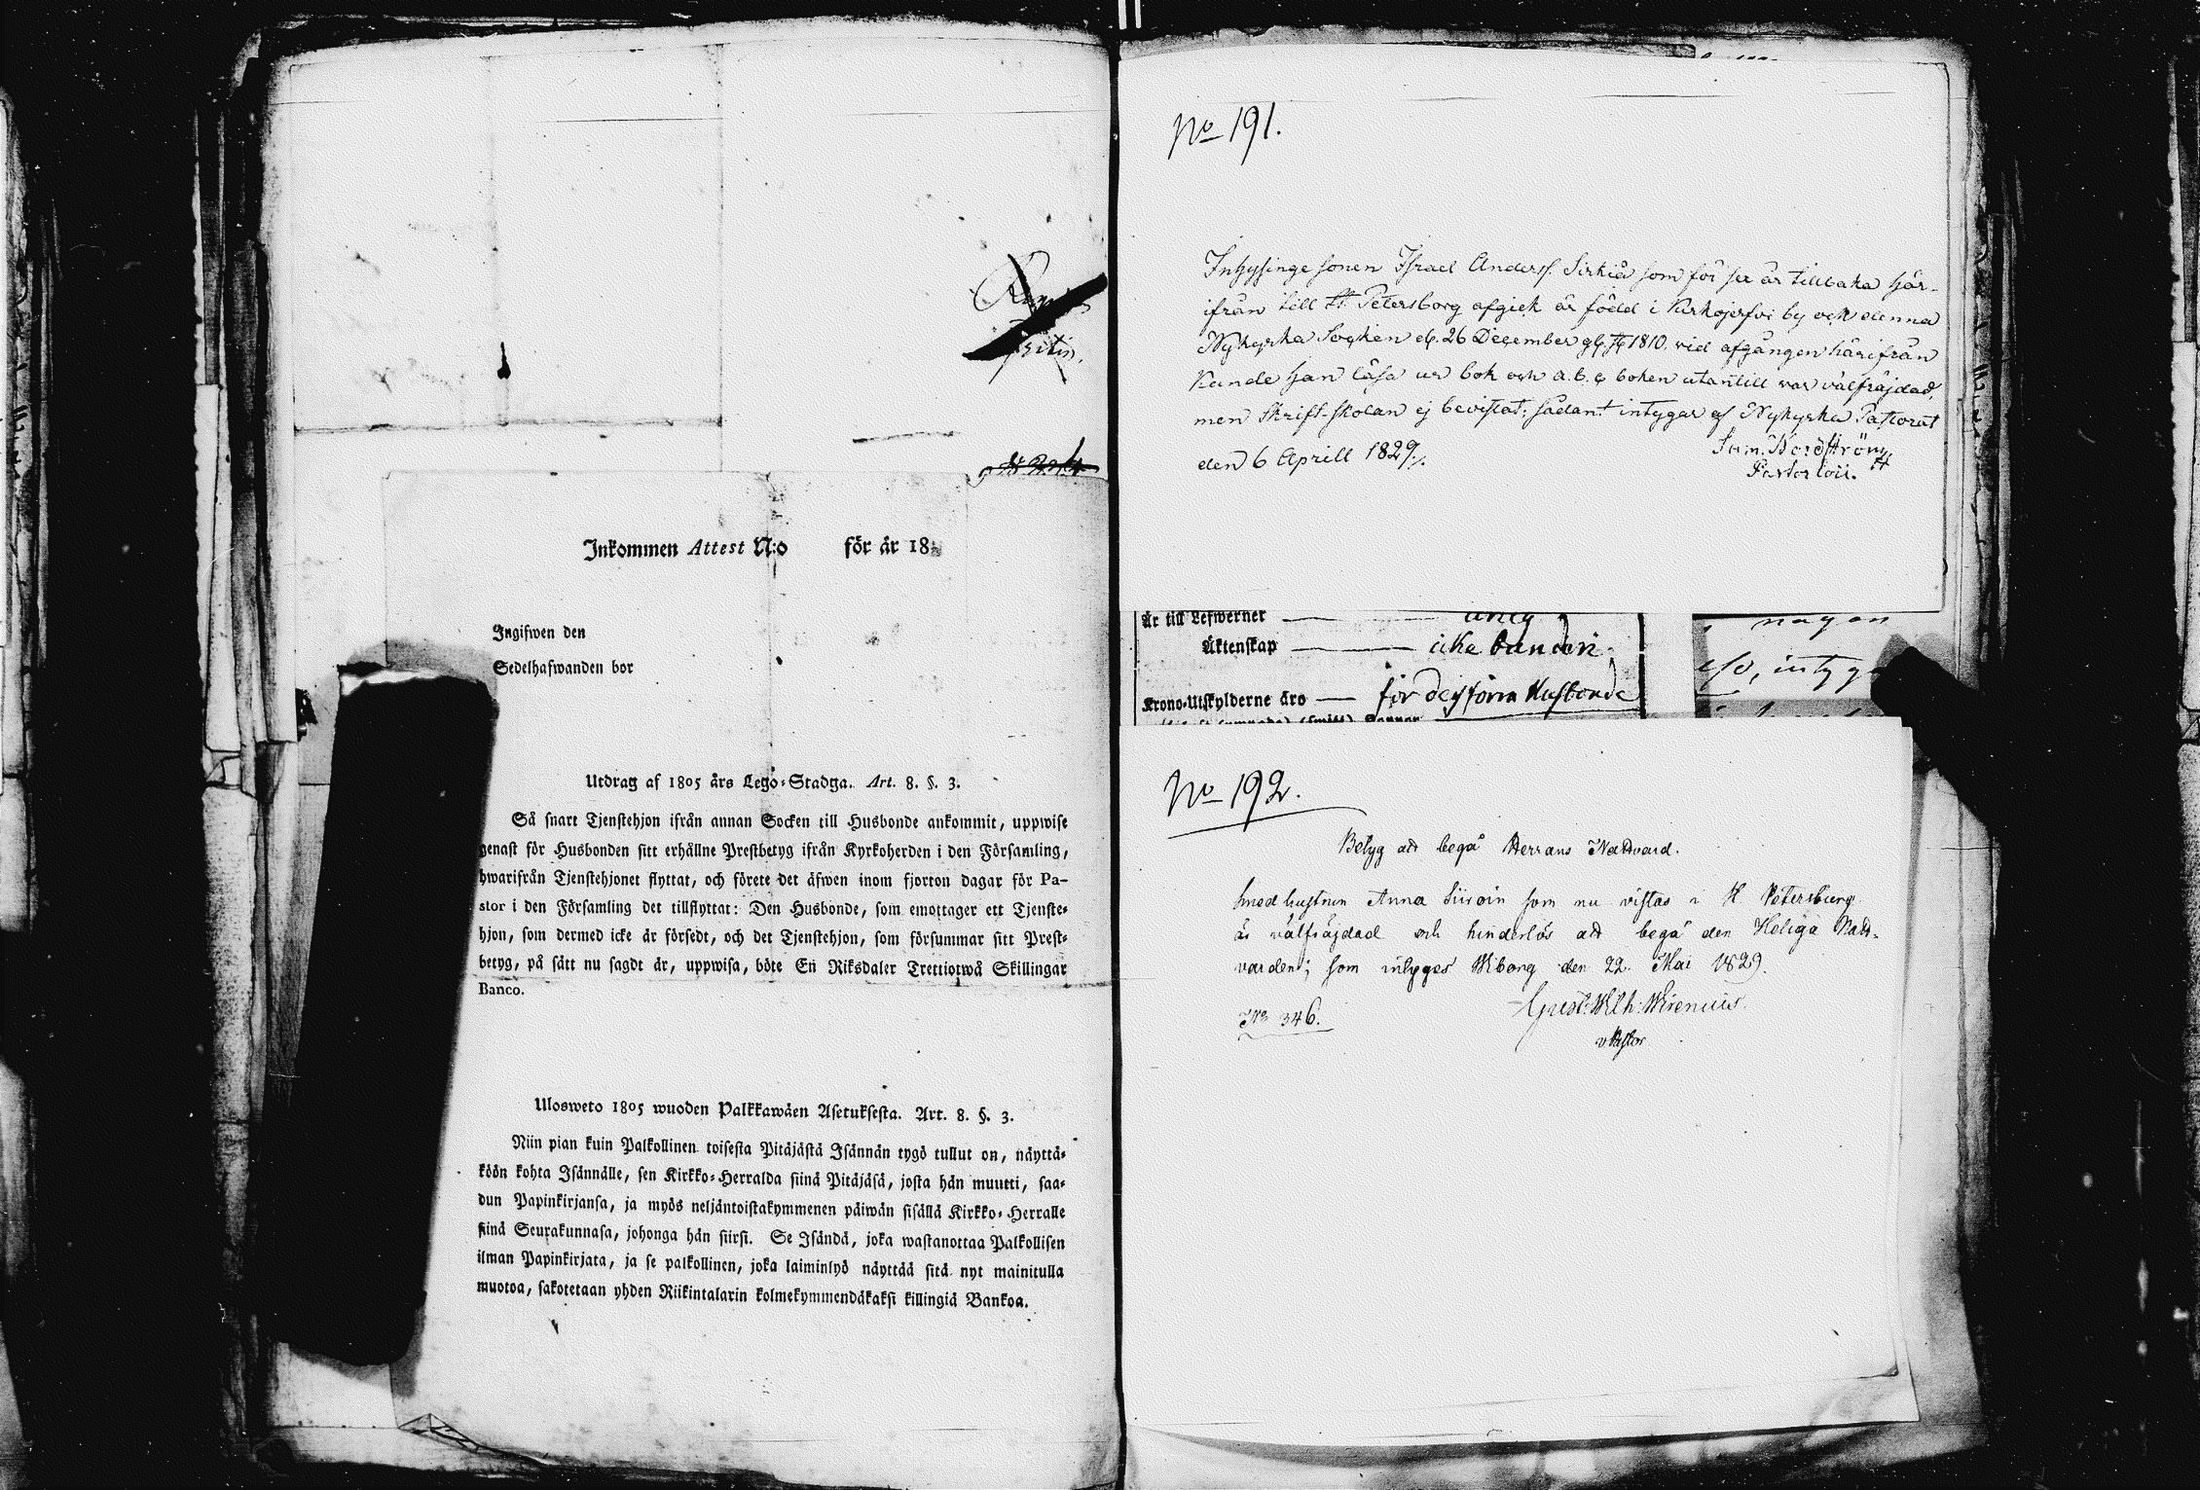 Inkommen Attest N:o för år 18
Ingifwen den
Sedelhafwanden bor
Utdrag af 1805 års Lego-Stadga. Art. 8. §. 3.
Så snart Tjenstehjon ifrån annan Socken till Husbonde ankommit, uppwise
genast för Husbonden sitt erhållne Prestbetyg ifrån Kyrkoherden i den Församling,
hwarifrån Tjenstehjonet flyttat, och förete det äfwen inom fjorton dagar för Pa-
stor i den Församling det tillflyttat: Den Husbonde, som emottager ett Tjenste-
hjon, som dermed icke är försedt, och det Tjenstehjon, som försummar sitt Prest-
betyg, på sätt nu sagdt är, uppwisa, böte En Riksdaler Trettiotwå Skillingar
Banco.
Ulosweto 1805 wuoden Palkkawäen Asetuksesta. Art. 8. §. 3.
Niin pian kuin Palkollinen toisesta Pitäjästä Isännän tygö tullut on, näyttä-
köön kohta Isännälle, sen Kirkko-Herralda siinä Pitäjäsä, josta hän muutti, saa-
dun Papinkirjansa, ja myös neljäntoistakymmenen päiwän sisällä Kirkko-Herralle
siinä Seurakunnasa, johonga hän siirsi. Se Isändä, joka wastanottaa Palkollisen
ilman Papinkirjata, ja se palkollinen, joka laiminlyö näyttää sitä nyt mainitulla
muotoa, sakotetaan yhden Riikintalarin kolmekymmendäkaksi killingiä Bankoa.
No 191.
Inhysinge sonen Israel Anderss. Sirkiä som för sex år tillbaka här-
ifrån till St Petersborg afgick är född i Kirkojerfvi by och denna
Nykyrka Socken d. 26 December 1810. vid afgången härifrån
Kunde han läsa ur bok och a.b.c boken utantill var välfräjdad,
men Skrift-skolan ej bevistat; sådant intygar af Nykyrka Pastorat
den 6 Aprill 1829.
Sam. Nordström
Pastor
Är till Lefwernet
Äktenskap icke bunden
Krono-Utskylderne äro för dess förra Husbonde
någon
intyga
No 192.
Betyg att begå Herrans Nattvard.
Smedhustrun Anna Siiroin som nu vistas i St Petersburg
är välfräjdad och hinderlös att begå den Heliga Natt-
varden; som intygas Wiborg den 22. Mai 1829.
No 346. Gust: Wilh: Wirenius.
v Pastor